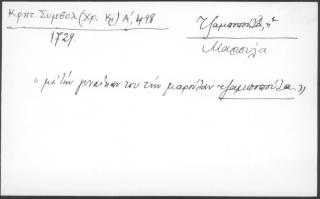 Κρητ. Συμβολ (Χρ. Κρ) Α', 498
1729.
Τζαμποπούλα, ἡ
Μαρούλα
« μὲ τὴν γυναίκαν του τὴν μαρούλαν τζαμποπούλα »